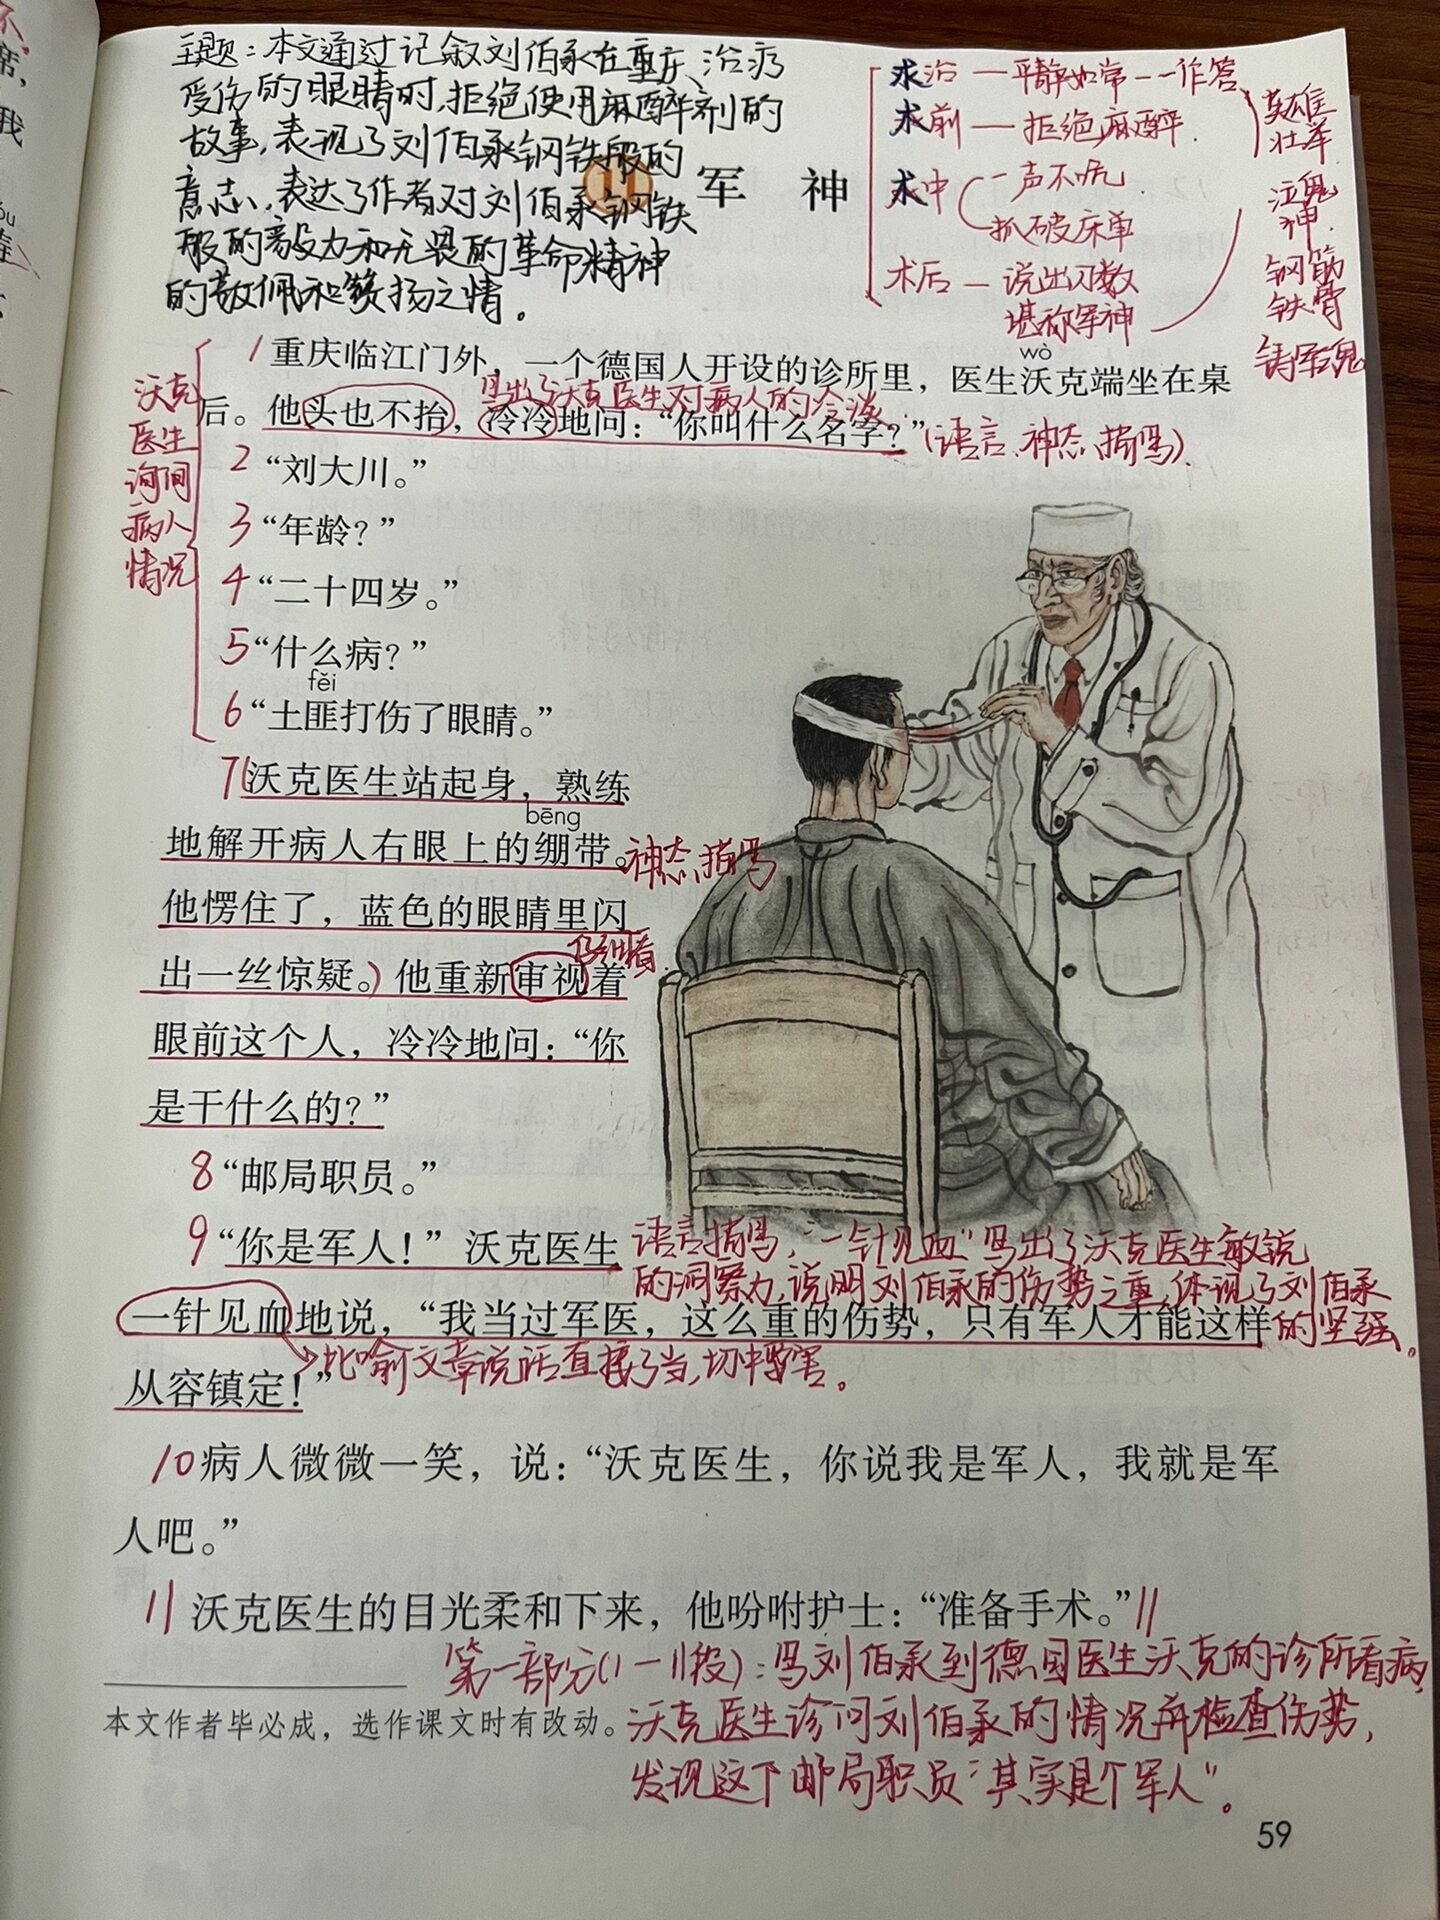 主题：本文通过记叙刘伯承在重庆治疗
受伤的眼睛时，拒绝使用麻醉剂的
故事，表现了刘伯承钢铁般的
意志，表达了作者对刘伯承钢铁
般的毅力和无畏的革命精神
的敬佩和赞扬之情。
11 军 神
求治 — 平静如常 — 一作答
术前 — 拒绝麻醉.
术中 一声不吭.
抓破床单
术后 — 说出刀数
堪称军神
英雄
壮举
泣鬼
神.
钢筋
铁骨
铸军魂
沃克
医生
询问
病人
情况
1 重庆临江门外，一个德国人开设的诊所里，医生沃克端坐在桌
wò
写出了沃克医生对病人的冷淡.
后。他头也不抬，冷冷地问：“你叫什么名字？”(语言、神态描写).
2 “刘大川。”
3 “年龄？”
4 “二十四岁。”
5 “什么病？”
fěi
6 “土匪打伤了眼睛。”
7 沃克医生站起身，熟练
bēng
地解开病人右眼上的绷带。神态描写
他愣住了，蓝色的眼睛里闪
仔细看.
出一丝惊疑。）他重新审视着
眼前这个人，冷冷地问：“你
是干什么的？”
8 “邮局职员。”
9 “你是军人！”沃克医生
语言描写，“一针见血”写出了沃克医生敏锐
的洞察力，说明刘伯承的伤势之重，体现了刘伯承
的坚强。
一针见血地说，“我当过军医，这么重的伤势，只有军人才能这样
比喻文章说话直接了当，切中要害。
从容镇定！”
10 病人微微一笑，说：“沃克医生，你说我是军人，我就是军
人吧。”
11 沃克医生的目光柔和下来，他吩咐护士：“准备手术。”11
第一部分(1—11段)：写刘伯承到德国医生沃克的诊所看病，
本文作者毕必成，选作课文时有改动。
沃克医生诊问刘伯承的情况并检查伤势，
发现这个“邮局职员”其实是个军人”。
59
席，
我